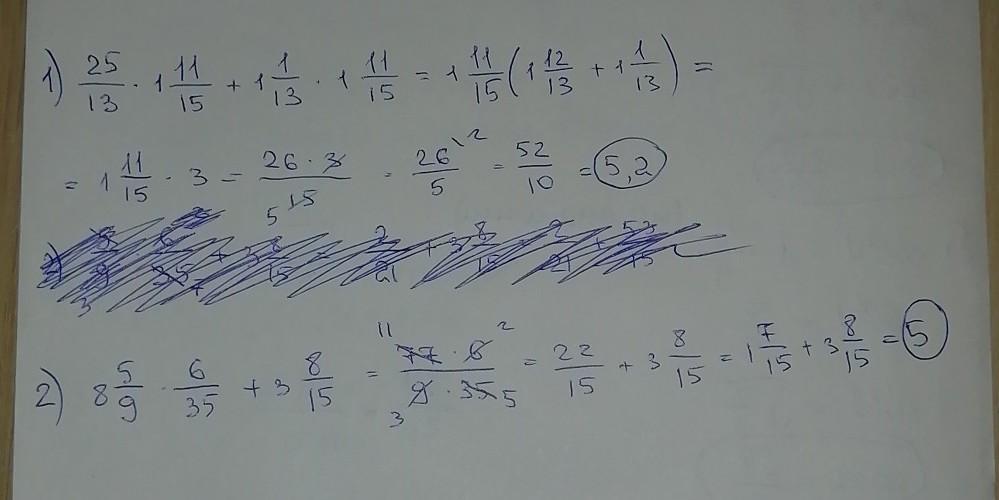 1) 25/13 · 1 11/15 + 1 1/13 · 1 11/15 = 1 11/15 (1 12/13 + 1 1/13) =
= 1 11/15 · 3 = 26 · 3/15 5 = 26/5 \2 = 52/10 = 5,2
2) 8 5/9 · 6/35 + 3 8/15 = 11 77 · 6 2/3 9 · 35 5 = 22/15 + 3 8/15 = 1 7/15 + 3 8/15 = 5